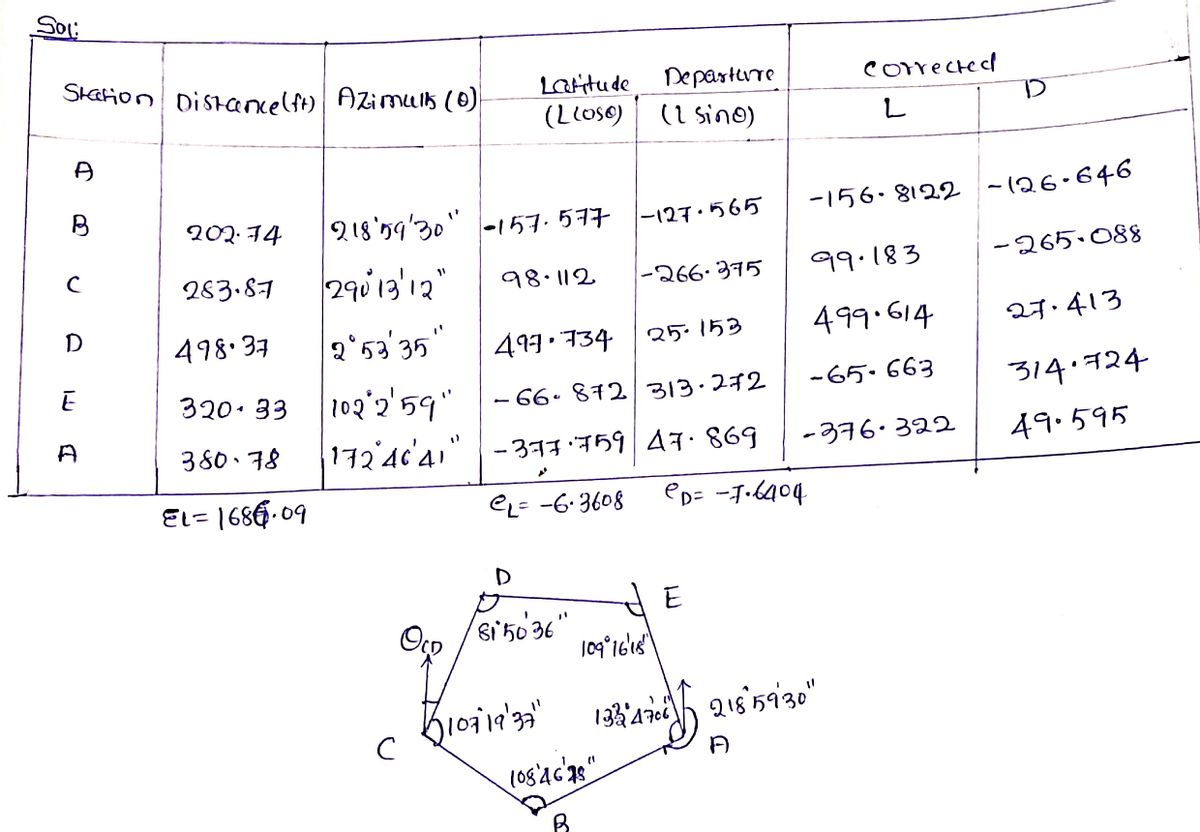 Sol:
Station Distance(ft) Azimuth (θ) Latitude (Lcosθ) Departure (l sinθ) corrected L D
A
B 202.74 218°59'30" -157.577 -127.565 -156.8122 -126.646
C 283.87 290°13'12" 98.112 -266.375 99.183 -265.088
D 498.37 2°53'35" 497.734 25.153 499.614 27.413
E 320.33 102°2'59" -66.872 313.272 -65.663 314.724
A 380.78 172°46'41" -377.759 47.869 -376.322 49.595
ΣL= 1686.09 eL= -6.3608 eD= -7.6404
D E
θCD 81°50'36" 109°16'18"
107°19'37" 218°59'30"
C A
B